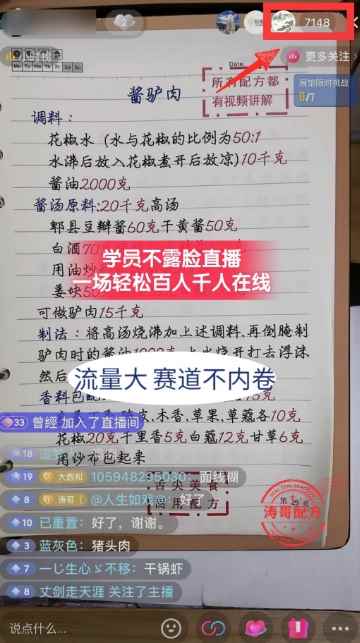 7148
更多关注
Date
酱驴肉
所有配方都
有视频讲解
调料：
花椒水（水与花椒的比例为50:1
水沸后放入花椒煮开后放凉)10千克
酱油2000克
酱汤原料:20千克高汤
郫县豆瓣酱60克干黄酱50克
白酒70
学员不露脸直播
一场轻松百人千人在线
用油炒
姜块50
可做驴肉15千克
制法：将高汤烧沸加上述调料.再倒腌制
驴肉时的酱油1000
上火烧开打去浮沫
然后
流量大 赛道不内卷
香料包
33 曾經 加入了直播间
木香,草果,草蔻各10克
花椒20克千里香5克白蔻12克甘草6克
用纱布包起来
18
19 大数知 105948295030：面线糊
8 涛哥 @人生如戏@：好了
10 已重置：好了，谢谢。
商用配方
涛哥配方
3 蓝灰色：猪头肉
7 一じ生心ゞ不移：干锅虾
8 丈剑走天涯 关注了主播
说点什么...